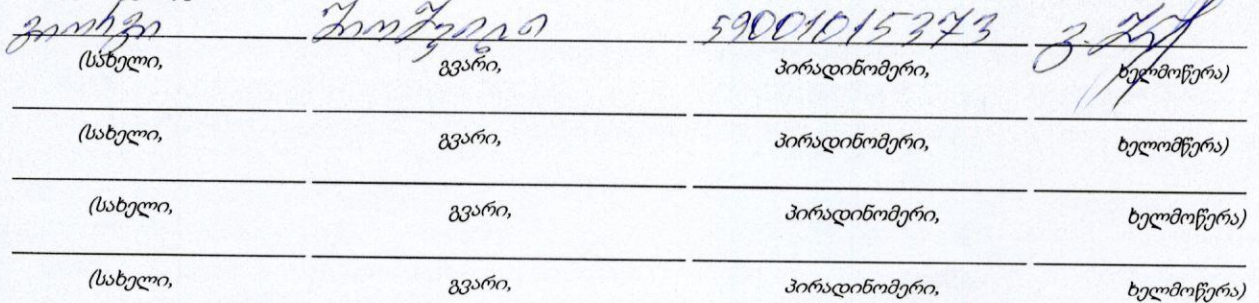 გიორგი 59001015373
(სახელი, გვარი, პირადინომერი, ხელმოწერა)
(სახელი, გვარი, პირადინომერი, ხელომწერა)
(სახელი, გვარი, პირადინომერი, ხელმოწერა)
(სახელი, გვარი, პირადინომერი, ხელმოწერა)